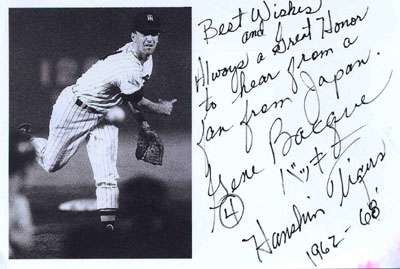 Best Wishes
and
Always a Great Honor
to hear from a
fan from Japan.
Gene Bacque
バッキー
④
Hanshin Tigers
1962-68